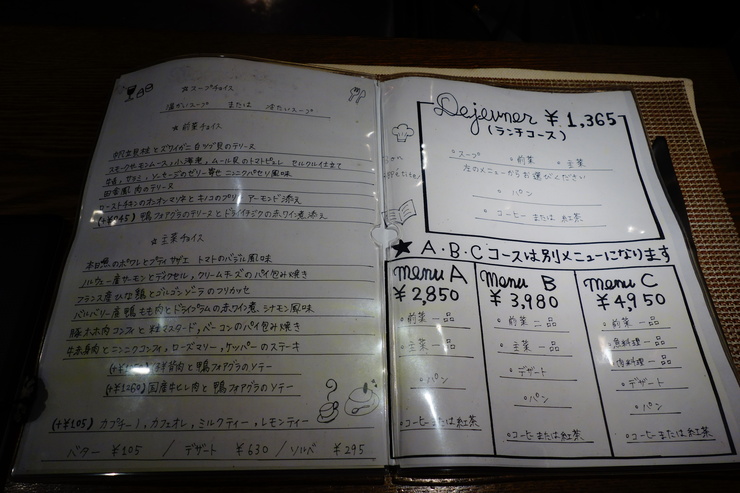 ☆スープチョイス
温かいスープ または 冷たいスープ
☆前菜チョイス
帆立貝柱とズワイガニ 白ツブ貝のテリーヌ
スモークサーモンムースと小海老、ムール貝のトマトピュレ セルクル仕立て
サラミ、ソーセージのゼリー寄せ ニンニクパセリ風味
田舎風 肉のテリーヌ
ローストチキンのガランティーヌとキノコの アーモンド添え
鴨フォアグラのテリーヌとドライイチジクの赤ワイン煮添え
☆主菜チョイス
本日魚のポワレとプティサザエ トマトのバジル風味
ノルウェー産サーモンとデュクセル、クリームチーズのパイ包み焼き
フランス産ひな鶏とゴルゴンゾーラのフリカッセ
バルバリー産 鴨もも肉とドライプラムの赤ワイン煮、シナモン風味
豚ホホ肉コンフィと粒マスタード、ベーコンのパイ包み焼き
牛赤身肉とニンニクコンフィ、ローズマリー、ケッパーのステーキ
鴨フォアグラのソテー
(+¥1260) 国産牛ヒレ肉と鴨フォアグラのソテー
(+¥105) カプチーノ、カフェオレ、ミルクティー、レモンティー
バター ¥105 / デザート ¥630 / ソルベ ¥295
Dejeuner ¥1,365
(ランチコース)
○スープ ○前菜 ○主菜
左のメニューからお選びください
○パン
○コーヒー または 紅茶
★A・B・Cコースは別メニューになります
menu A
¥2,850
○前菜 一品
○主菜 一品
○パン
○コーヒーまたは紅茶
Menu B
¥3,980
○前菜 二品
○主菜 一品
○デザート
○パン
○コーヒーまたは紅茶
Menu C
¥4,950
○前菜 一品
○魚料理 一品
○肉料理 一品
○デザート
○パン
○コーヒーまたは紅茶